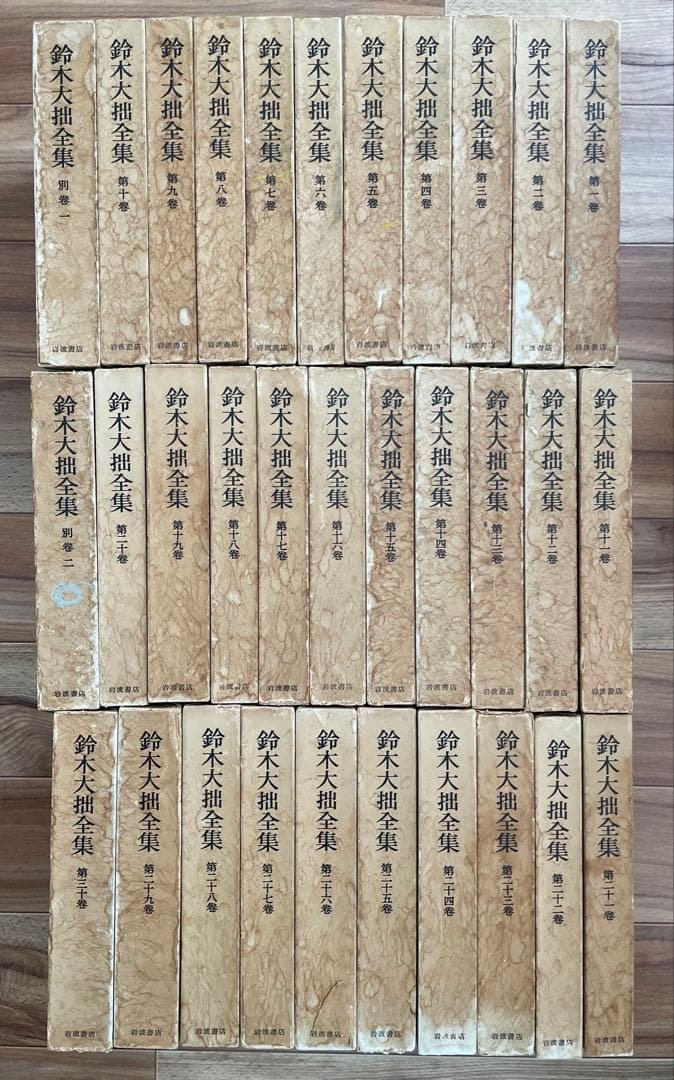 鈴木大拙全集 第一卷 岩波書店
鈴木大拙全集 第二卷 岩波書店
鈴木大拙全集 第三卷 岩波書店
鈴木大拙全集 第四卷 岩波書店
鈴木大拙全集 第五卷 岩波書店
鈴木大拙全集 第六卷 岩波書店
鈴木大拙全集 第七卷 岩波書店
鈴木大拙全集 第八卷 岩波書店
鈴木大拙全集 第九卷 岩波書店
鈴木大拙全集 第十卷 岩波書店
鈴木大拙全集 別卷一 岩波書店
鈴木大拙全集 第十一卷 岩波書店
鈴木大拙全集 第十二卷 岩波書店
鈴木大拙全集 第十三卷 岩波書店
鈴木大拙全集 第十四卷 岩波書店
鈴木大拙全集 第十五卷 岩波書店
鈴木大拙全集 第十六卷 岩波書店
鈴木大拙全集 第十七卷 岩波書店
鈴木大拙全集 第十八卷 岩波書店
鈴木大拙全集 第十九卷 岩波書店
鈴木大拙全集 第二十卷 岩波書店
鈴木大拙全集 別卷二 岩波書店
鈴木大拙全集 第二十一卷 岩波書店
鈴木大拙全集 第二十二卷 岩波書店
鈴木大拙全集 第二十三卷 岩波書店
鈴木大拙全集 第二十四卷 岩波書店
鈴木大拙全集 第二十五卷 岩波書店
鈴木大拙全集 第二十六卷 岩波書店
鈴木大拙全集 第二十七卷 岩波書店
鈴木大拙全集 第二十八卷 岩波書店
鈴木大拙全集 第二十九卷 岩波書店
鈴木大拙全集 第三十卷 岩波書店